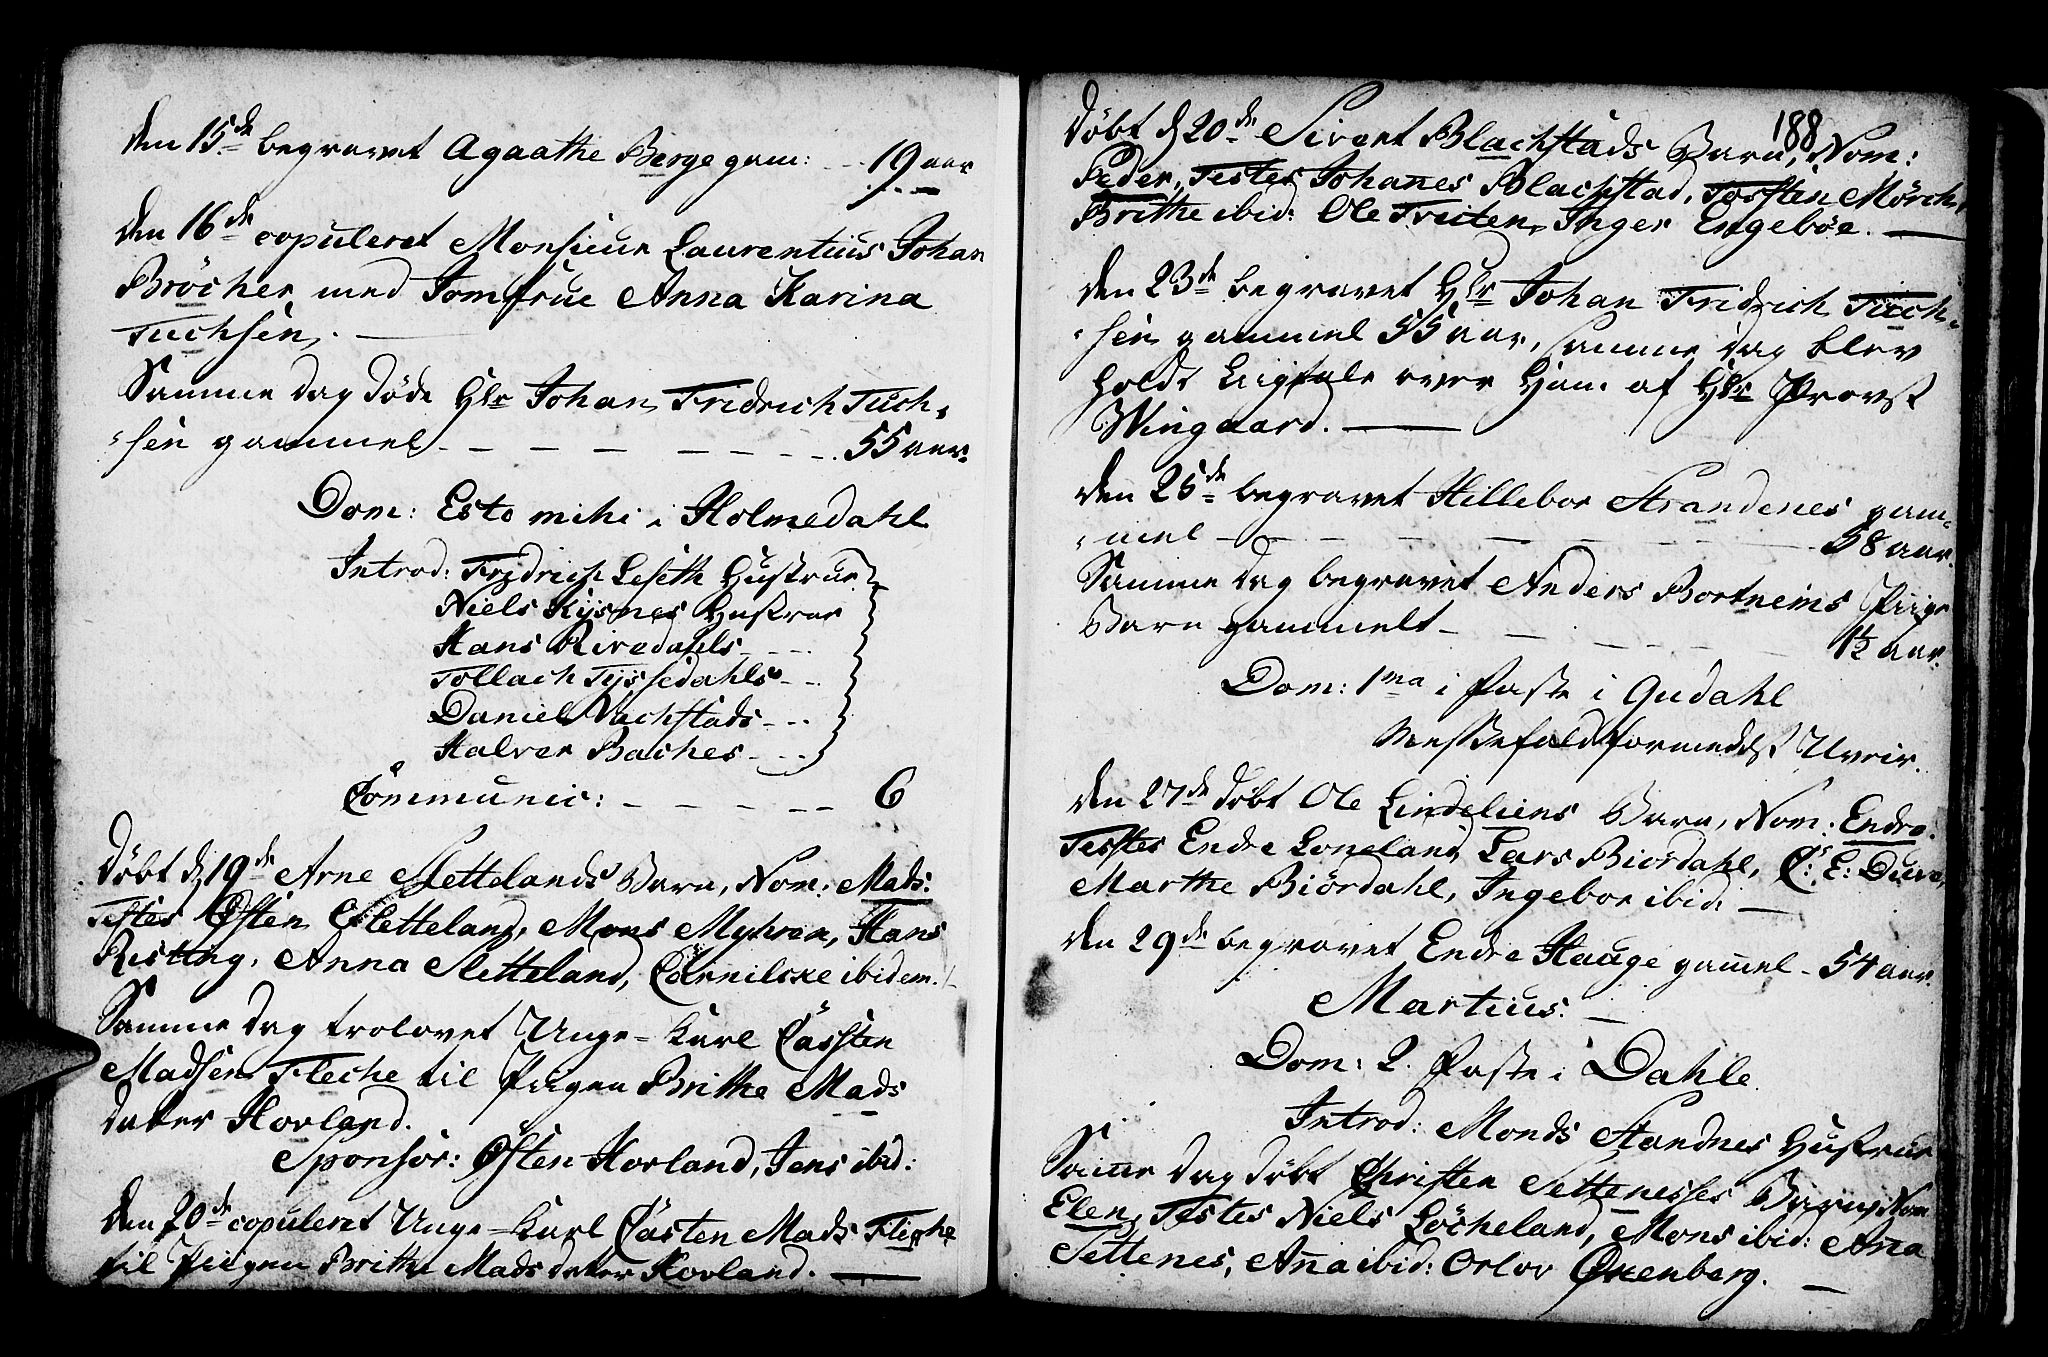 den 15de begravet Agaathe Berge gam: - - 19 aar
den 16de copuleret Monsieur Laurentius Johan
Bröcher med Jomfrue Anna Karina
Tuchsen. —
Samme Dag döde Hr Johan Fridrich Tuch-
sen gammel - - - - - - - 55 aar.
Dom: Esto mihi i Holmedahl
Introd: Fridrich Leseth Hustrue
Niels Kysnes Hustrue
Hans Rivedahls - - -
Tollach Tyssedahls - - -
Daniel Vachstads - - -
Halver Baches - - -
Communic: - - - - - 6
Döbt d 19de Arne Slettelands Barn, Nom: Mads.
Testes Østen Sletteland, Mons Myhren, Hans
Risting, Anna Sletteland, Cornilske ibidem.
Samme Dag trolovet Unge-Karl Casten
Madsen Fleche til Piigen Brithe Mads
dater Hovland.
Sponsor: Østen Hovland, Jens ibid:
Den 20de copuleret Unge-Karl Casten Mads: Fleche
til Piigen Brithe Madsdater Hovland. —
188
Döbt d 20de Sivert Blachstads Barn, Nom:
Peder, Testes Johanes Blachstad, Torsten Mörch,
Brithe ibid: Ole Truten, Inger Engeböe. —
den 23de begravet Hr Johan Fridrich Tuch-
sen gammel 55 aar, samme Dag blev
holdt Liigtale over Ham af Hr Provst
Wingaard. —
den 25de begravet Hillebor Strandenes gam-
mel - - - - - - - - 58 aar.
Samme Dag begravet Anders Bortneims Piige
Barn gammelt - - - - - 1½ aar.
Dom: 1ma i Faste i Gudahl
Messefald formedelst Uveir.
den 27de döbt Ole Lindeliens Barn, Nom: Endre.
Testes Endre Loneland, Lars Biördahl, C: E: Due,
Marthe Biördahl, Ingebor ibid: —
den 29de begravet Endre Hauge gamel - 54 aar.
Martius. —
Dom: 2. Faste i Dahle
Introd: Monds Standnes Hustrue
Same Dag döbt Christen Settenesses Barn, Nom
Elen, Testes Niels Löcheland, Mons ibid: Ana
Settenes, Ana ibid: Orlov Oxenberg. —